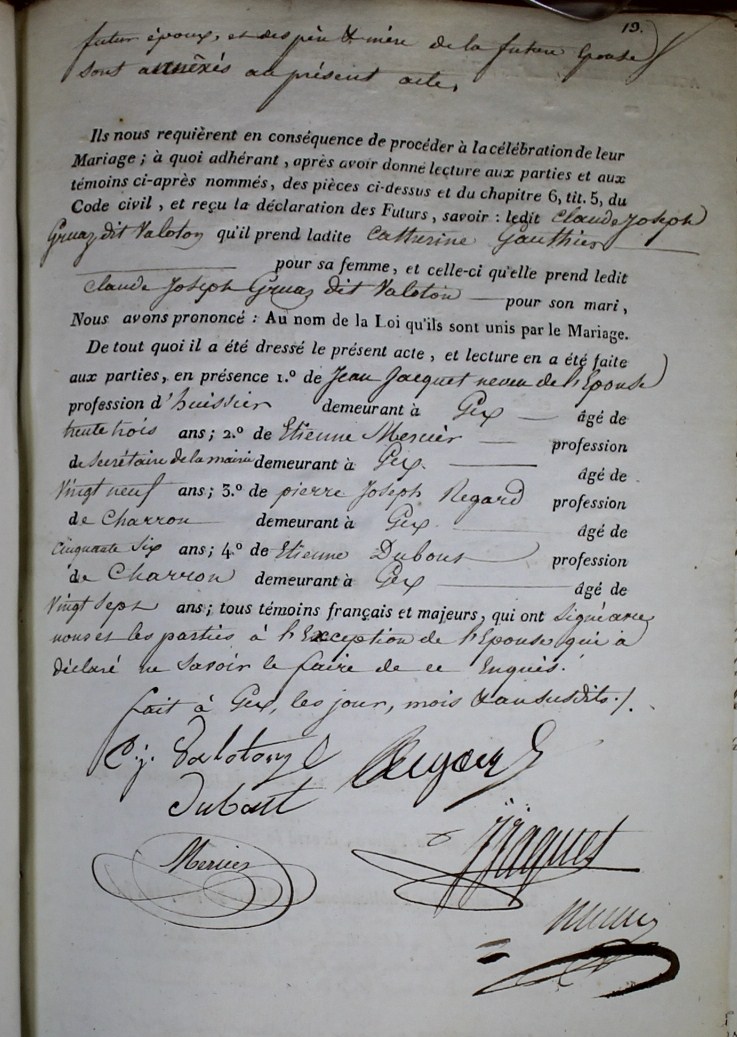 13.
futur époux, et des père & mère de la future Epouse
sont annèxés au présent acte,
Ils nous requièrent en conséquence de procéder à la célébration de leur
Mariage ; à quoi adhérant , après avoir donné lecture aux parties et aux
témoins ci-après nommés, des pièces ci-dessus et du chapitre 6, tit. 5, du
Code civil , et reçu la déclaration des Futurs , savoir : ledit Claude Joseph
Gruaz dit Valoton qu'il prend ladite Catherine Gauthier
pour sa femme, et celle-ci qu'elle prend ledit
Claude Joseph Gruaz dit Valoton pour son mari ,
Nous avons prononcé : Au nom de la Loi qu'ils sont unis par le Mariage.
De tout quoi il a été dressé le présent acte , et lecture en a été faite
aux parties, en présence 1.º de Jean Jacquet neveu de l'Epouse
profession d'huissier demeurant à Gex âgé de
trente trois ans ; 2.º de Etienne Mercier profession
de Secrétaire de la mairie demeurant à Gex. âgé de
Vingt neuf ans ; 3.º de pierre Joseph Regard profession
de Charron demeurant à Gex âgé de
Cinquante Six ans ; 4º de Etienne Dubout profession
de Charron demeurant à Gex âgé de
Vingt Sept ans ; tous témoins français et majeurs, qui ont Signé avec
nous et les parties à l'Exception de l'Epouse qui a
déclaré ne Savoir le faire de ce Enquis.
fait à Gex, les jour, mois & an susdits ./.
C. j. Valoton
Regard
Dubout
Mercier
Jaquet